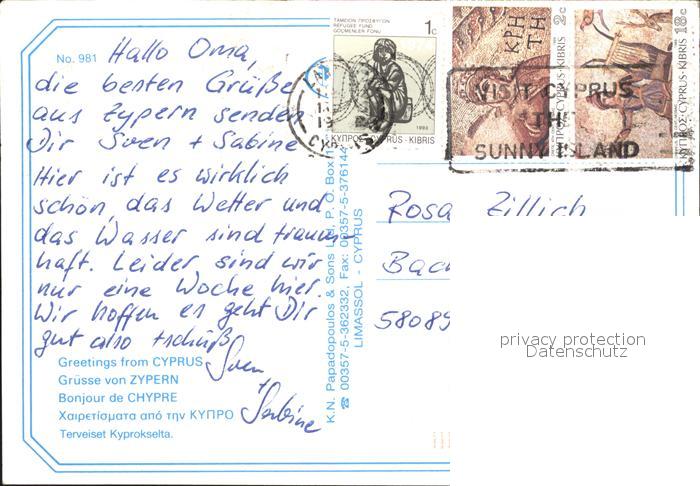 No. 981
Hallo Oma,
die besten Grüße
aus Zypern senden
Dir Sven + Sabine
Hier ist es wirklich
schön, das Wetter und
das Wasser sind traum-
haft. Leider sind wir
nur eine Woche hier.
Wir hoffen es geht Dir
gut also tschüß
Sven
+ Sabine
Greetings from CYPRUS
Grüsse von ZYPERN
Bonjour de CHYPRE
Χαιρετίσματα από την ΚΥΠΡΟ
Terveiset Kyprokselta.
K.N. Papadopoulos & Sons Ltd. P. O. Box
☎ 00357-5-362332, Fax: 00357-5-376144
LIMASSOL - CYPRUS
ΤΑΜΕΙΟΝ ΠΡΟΣΦΥΓΩΝ
REFUGEE FUND
GÖÇMENLER FONU
1c
ΚΥΠΡΟΣ CYPRUS KIBRIS
ΚΡΗ
ΤΗ
2c
ΚΥΠΡΟΣ·CYPRUS·KIBRIS
18c
ΚΥΠΡΟΣ·CYPRUS·KIBRIS
VISIT CYPRUS
THE
SUNNY ISLAND
Rosa Zillich
58089
privacy protection
Datenschutz